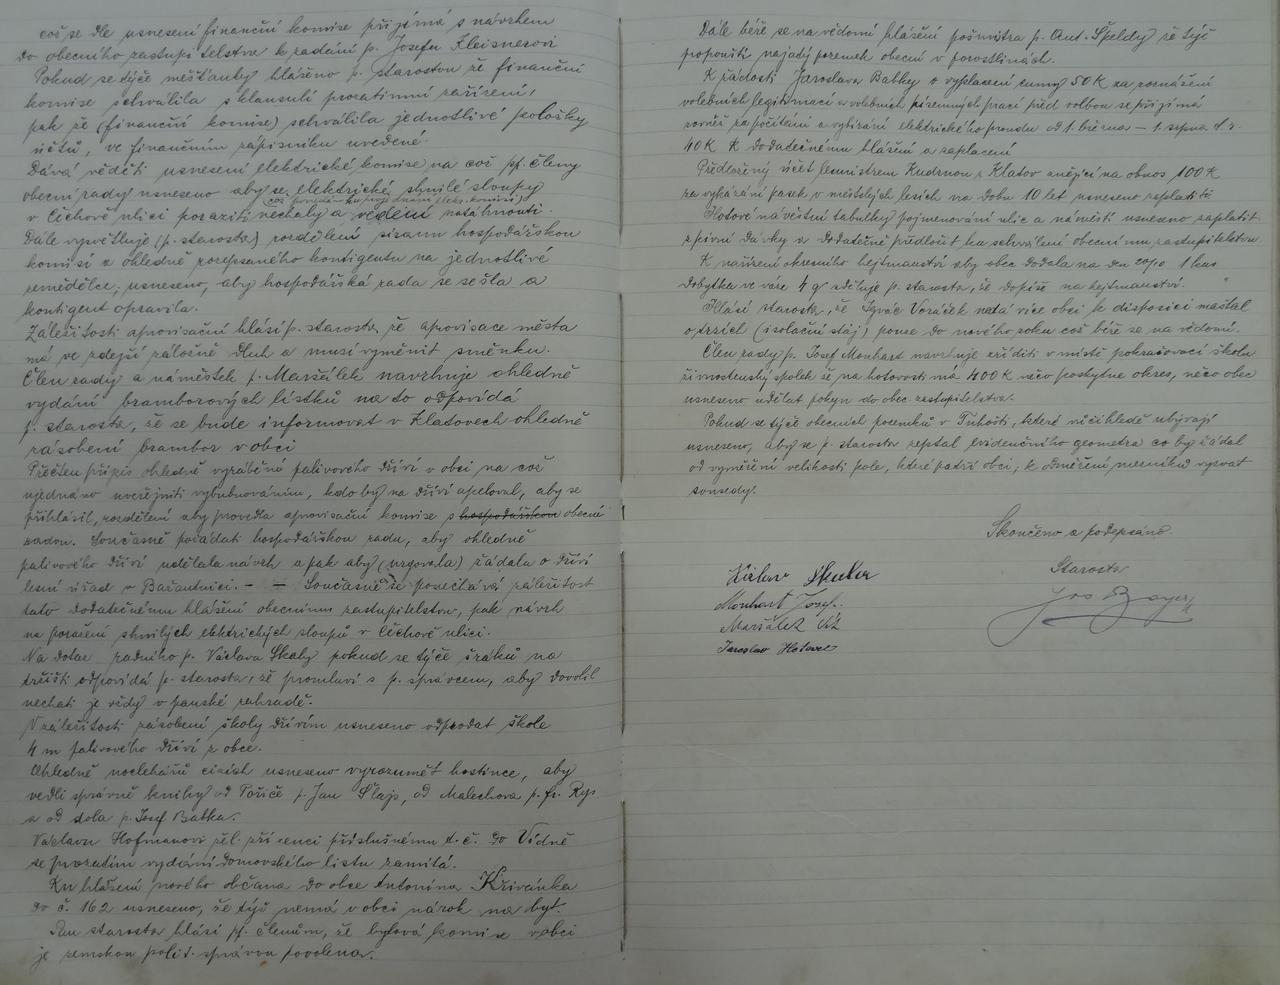 což se dle usnesení finanční komise přijímá s návrhem
do obecního zastupitelstva k zadání p. Josefu Kleisnerovi
Pokud se týče měšťanky hlášeno p. starostou že finanční
komise schválila s klausulí prozatímní zařízení,
pak že (finanční komise) schválila jednotlivé položky
účtů, ve finančním zápisníku uvedené.
Dává věděti usnesení elektrické komise na což pp. členy
obecní rady usneseno aby se elektrické shnilé sloupy
v Čechově ulici poraziti nechaly a vedení natáhnouti.
Dále vysvětluje (p. starosta) rozdělení sýrami hospodářskou
komisí a ohledně rozepsaného kontigentu na jednotlivé
zemědělce; usneseno, aby hospodářská rada se sešla a
kontigent opravila.
Záležitosti aprovisační hlásí p. starosta, že aprovisace města
má ve zdejší záložně dluh a musí vyměnit směnku.
Člen rady a náměstek p. Maršálek navrhuje ohledně
vydání bramborových lístků na to odpovídá
p. starosta, že se bude informovat v Klatovech ohledně
zásobení brambor v obci
Přečten přípis ohledně palivového dříví v obci na což
ujednáno uveřejniti vybubnováním, kdo by na dříví apeloval, aby se
přihlásil, rozdělení aby provedla aprovisační komise s hospodářskou obecní
radou. Současně požádati hospodářskou radu, aby ohledně
palivového dříví udělala návrh a pak aby (urgovala) žádala o dříví
lesní úřad v Bažantnici. – – Současně se ponechává záležitost
tato dodatečnému hlášení obecnímu zastupitelstvu, pak návrh
na poražení shnilých elektrických sloupů v Čechově ulici.
Na dotaz radního p. Václava Skaly pokud se týče šraků na
tržišti odpovídá p. starosta, že promluví s p. správcem, aby dovolil
nechati je vždy v panské zahradě.
V záležitosti zásobení školy dřívím usneseno odprodat škole
4 m palivového dříví z obce.
Ohledně noclehářů cizích usneseno vyrozumět hostince, aby
vedli správně knihy od Poříčí p. Jan Šlajs, od Malechova p. fr. Rys
a od dola p. Josef Babka.
Václavu Hofmanovi žel. zřízenci příslušnému t. č. do Vídně
se prozatím vydání domovského listu zamítá.
Ku hlášení nového občana do obce Antonína Křivánka
do č. 162 usneseno, že týž nemá v obci nárok na byt.
Pan starosta hlásí pp. členům, že bytová komise v obci
je zemskou polit. správou povolena.
Dále béře se na vědomí hlášení pošmistra p. Ant. Špeldy že týž
popouští najatý pozemek obecní v
K žádosti Jaroslava Babky o vyplacení sumy 50 K za roznášení
volebních legitimací a volebních písemných prací před volbou se přijímá
rovněž za počítání a vybírání elektrického proudu od 1. března – 1. srpna t. r.
40 K k dodatečnému hlášení a zaplacení
Předložený účet Kudrnou z Klatov znějící na obnos 100 K
za vykázání pasek v městských lesích na dobu 10 let usneseno zaplatiti.
Hotové návěstní tabulky pojmenování ulic a náměstí usneseno zaplatit
z pivní dávky a dodatečně předložit ku schválení obecnímu zastupitelstvu
K nařízení okresního hejtmanství aby obec dodala na den 20/10 1 kus
dobytka ve váze 4 q sděluje p. starosta, že dopíše na hejtmanství.
Hlásí starosta, že Ignác Voráček nedá více obci k disposici maštal
o trzích (isolační stáj) pouze do nového roku což béře se na vědomí.
Člen rady p. Josef Monhart navrhuje zříditi v místě pokračovací školu
živnostenský spolek že na hotovosti má 400 K něco poskytne okres, něco obec
usneseno udělat pokyn do obec. zastupitelstva.
Pokud se týče obecních pozemků v Tuhošti, které ubývají
usneseno, aby se p. starosta zeptal evidenčního geometra co by žádal
od vyměření velikosti pole, které patří obci; k odměření vyzvat
sousedy.
Skončeno a podepsáno.
Starosta
Jos Bayer
Škuler
Monhart Josef.
Maršálek Vít
Jaroslav Hotovec